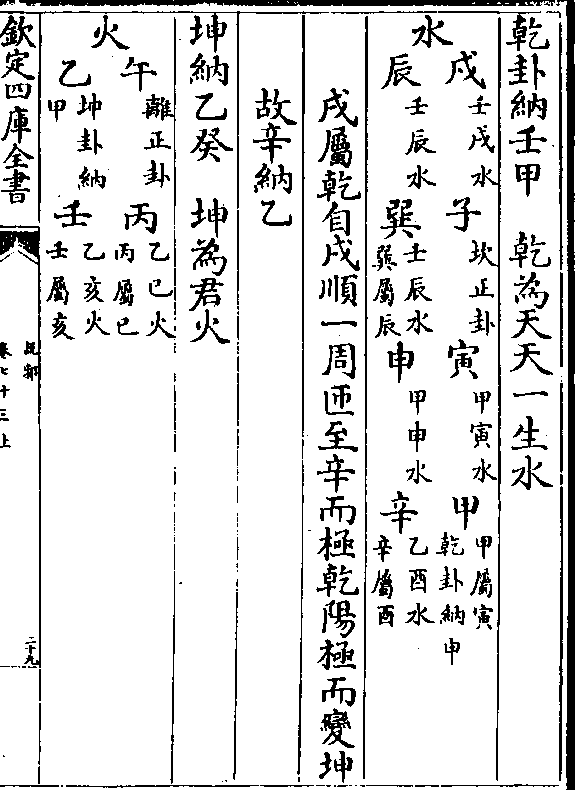 乾卦納壬甲　乾為天天一生水
水
戌 壬戌水 子 坎正卦 寅 甲寅水 甲 甲屬寅 乾卦納申
辰 壬辰水 巽 壬辰水 巽屬辰 申 甲申水 辛 乙酉水 辛屬酉
戌屬乾自戌順一周匝至辛而極乾陽極而變坤
故辛納乙
坤納乙癸　坤為君火
火
午 離正卦 丙 乙巳火 丙屬巳
乙 坤卦納甲 壬 乙亥火 壬屬亥
欽定四庫全書
卷七十三上
二十九